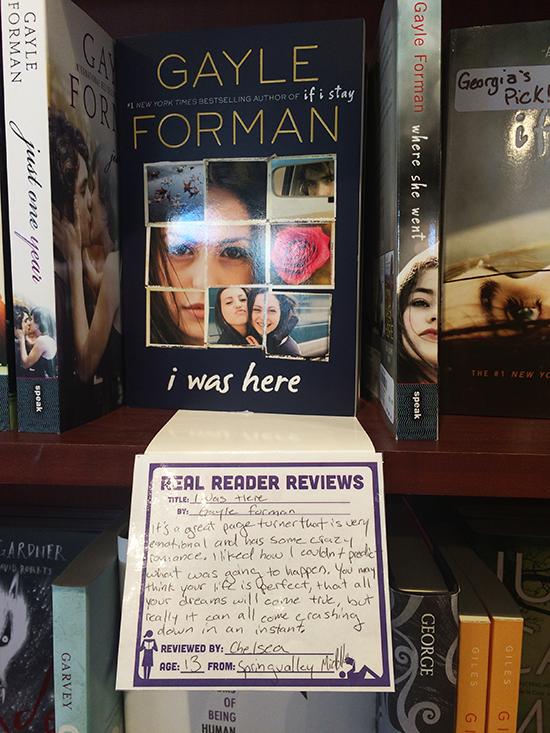 GAYLE FORMAN
just one year
speak
GAY
FOR
ju
GAYLE
#1 NEW YORK TIMES BESTSELLING AUTHOR OF if i stay
FORMAN
i was here
Gayle Forman where she went
speak
Georgia's
Pick!
if
THE #1 NEW YO
REAL READER REVIEWS
TITLE: I Was Here
BY: Gayle Forman
It's a great page turner that is very
emotional and has some crazy
romance. I liked how I couldn't predict
what was going to happen. You may
think your life is perfect, that all
your dreams will come true, but
really it can all come crashing
down in an instant.
REVIEWED BY: Chelsea
AGE: 13 FROM: Springvalley Middle
GARDNER
DAVID ROBERTS
GARVEY
OF
BEING
HUMAN
GEORGE
GILES
GI
GILES
G